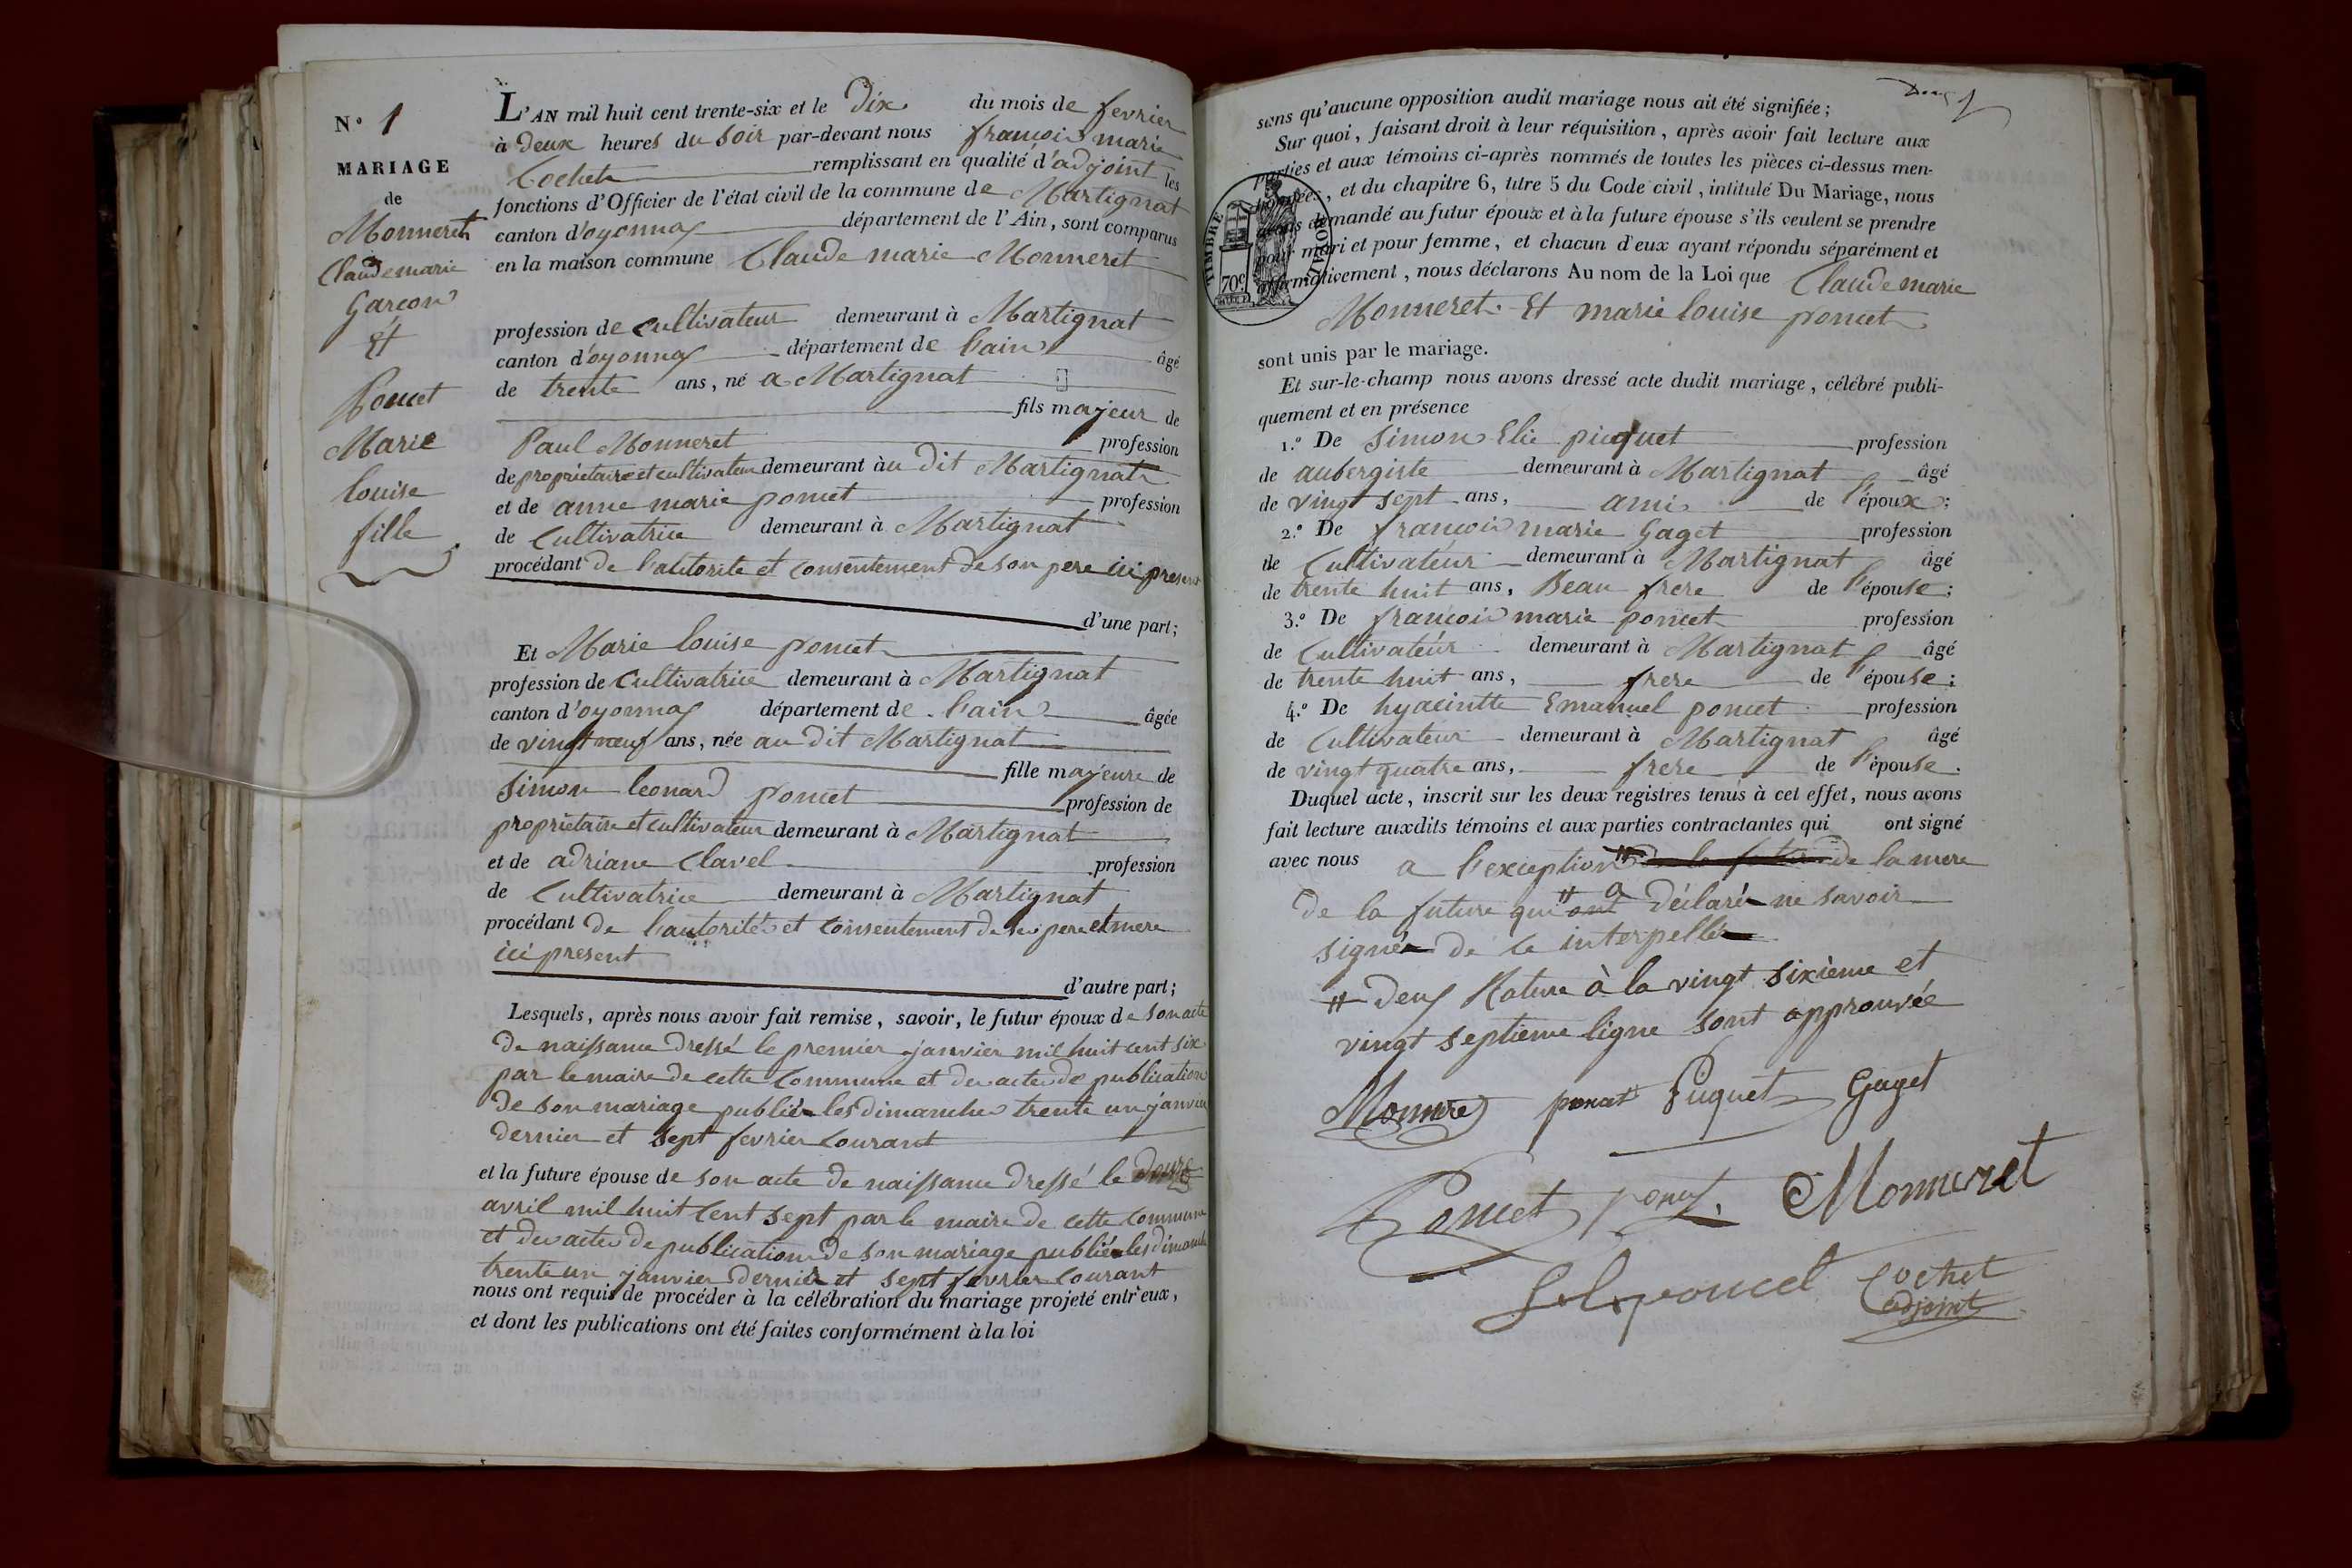 N.° 1
MARIAGE
de
Monneret
Claude marie
Garcon
Et
Poncet
Marie
louise
fille
L'AN mil huit cent trente-six et le Dix du mois de fevrier
à Deux heures du Soir par-devant nous francois marie
Cochet remplissant en qualité d'adjoint les
fonctions d'Officier de l'état civil de la commune de Martignat
canton d'oyonnax département de l'Ain, sont comparus
en la maison commune Claude marie Monneret
profession de Cultivateur demeurant à Martignat
canton d'oyonnax département de l'ain âgé
de trente ans, né a Martignat
fils majeur de
Paul Monneret profession
de proprietaire et cultivateur demeurant àu Dit Martignat
et de anne marie poncet profession
de Cultivatrice demeurant à Martignat
procédant de l'autorite et consentement de son pere ici present
d'une part;
Et Marie louise poncet
profession de Cultivatrice demeurant à Martignat
canton d'oyonnax département de l'ain âgée
de vingt neuf ans, née au dit Martignat
fille majeure de
Simon leonard poncet profession de
proprietaire et cultivateur demeurant à Martignat
et de adriane Clavel profession
de Cultivatrice demeurant à Martignat
procédant de l'autorité et consentement de ses pere et mere
ici present
d'autre part;
Lesquels, après nous avoir fait remise, savoir, le futur époux de son acte
de naissance dressé le premier janvier mil huit cent six
par le maire de cette Commune et des actes de publication
de son mariage publié les dimanches trente un janvier
dernier et sept fevrier courant
et la future épouse de son acte de naissance dressé le
avril mil huit cent sept par le maire de cette commune
et des actes de publication de son mariage publié les dimanche
trente un janvier dernier et sept fevrier courant
nous ont requis de procéder à la célébration du mariage projeté entr'eux,
et dont les publications ont été faites conformément à la loi
sans qu'aucune opposition audit mariage nous ait été signifiée;
Sur quoi, faisant droit à leur réquisition, après avoir fait lecture aux
parties et aux témoins ci-après nommés de toutes les pièces ci-dessus men-
tionnées, et du chapitre 6, titre 5 du Code civil, intitulé Du Mariage, nous
avons demandé au futur époux et à la future épouse s'ils veulent se prendre
pour mari et pour femme, et chacun d'eux ayant répondu séparément et
affirmativement, nous déclarons Au nom de la Loi que Claude marie
Monneret Et marie louise poncet
TIMBRE ROYAL
70c
sont unis par le mariage.
Et sur-le-champ nous avons dressé acte dudit mariage, célébré publi-
quement et en présence
1.° De Simon Elie piquet profession
de aubergiste demeurant à Martignat âgé
de vingt sept ans, ami de l'époux;
2.° De francois marie Gaget profession
de Cultivateur demeurant à Martignat âgé
de trente huit ans, Beau frere de l'épouse;
3.° De francois marie poncet profession
de Cultivateur demeurant à Martignat âgé
de trente huit ans, frere de l'épouse;
4.° De hyacintte Emanuel poncet profession
de Cultivateur demeurant à Martignat âgé
de vingt quatre ans, frere de l'épouse.
Duquel acte, inscrit sur les deux registres tenus à cet effet, nous avons
fait lecture auxdits témoins et aux parties contractantes qui ont signé
avec nous a l'exception de la mere
de la future qui a déclaré ne savoir
signé de ce interpellé
# deux Rature à la vingt sixième et
vingt septieme ligne sont approuvée
Monneret poncet Piquet Gaget
Poncet Monneret
poncet Cochet
adjoint